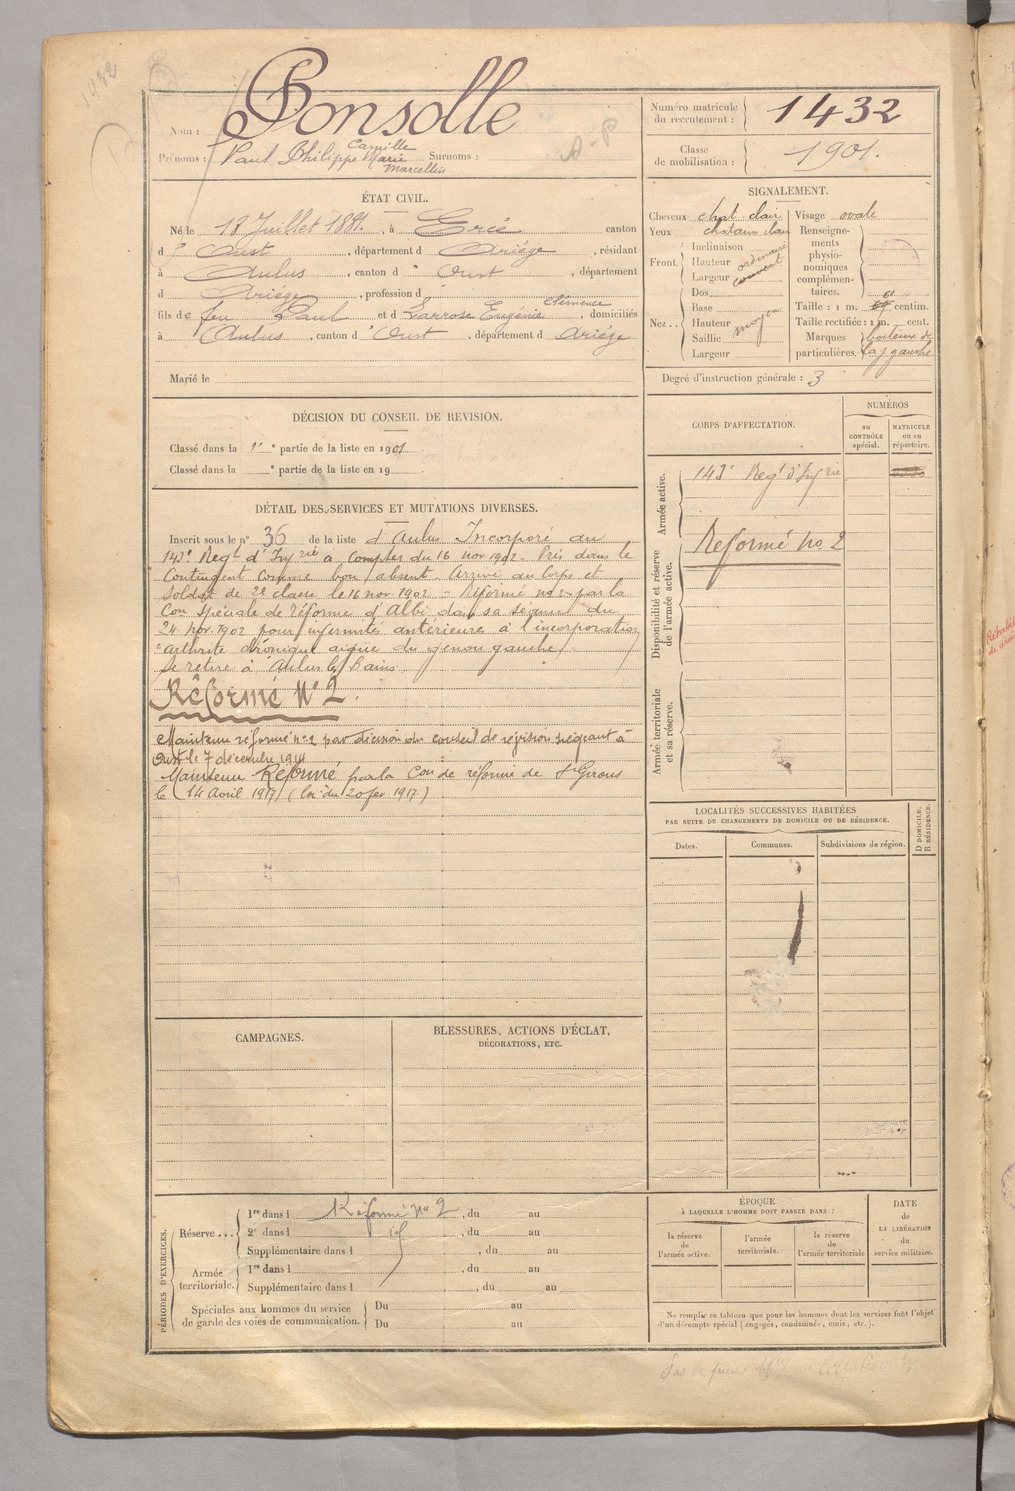 1432
Nom : Ponsolle
Prénoms : Paul Philippe Camille Marie Marcellin Surnoms :
A-P
Numéro matricule du recrutement : 1432
Classe de mobilisation : 1901.
ÉTAT CIVIL.
Né le 18 Juillet 1881, à Ercé canton
d' Oust, département d Ariége, résidant
à Aulus, canton d' Oust, département
d Ariége, profession d
fils de feu Paul et d Larrose Eugénie Clémence, domiciliés
à Aulus, canton d' Oust, département d Ariége
Marié le
SIGNALEMENT.
Cheveux chat. clair
Yeux chatans clair
Front Inclinaison
Hauteur ordinaire
Largeur couvert
Nez Dos
Base
Hauteur moyen
Saillie
Largeur
Visage ovale
Renseignements physionomiques complémentaires.
Taille : 1 m. 61 centim.
Taille rectifiée : 1 m. cent.
Marques particulières. boiteux de la j gauche
Degré d'instruction générale : 3
DÉCISION DU CONSEIL DE REVISION.
Classé dans la 1e partie de la liste en 1901
Classé dans la e partie de la liste en 19
CORPS D'AFFECTATION.
NUMÉROS
au CONTRÔLE spécial.
MATRICULE ou au répertoire.
Armée active.
143e Regt d'Infrie
Disponibilité et réserve de l'armée active.
Reformé no 2
Armée territoriale et sa réserve.
DÉTAIL DES SERVICES ET MUTATIONS DIVERSES.
Inscrit sous le n° 36 de la liste d'Aulus Incorporé au
143e Regt d'Infrie à Compter du 16 nov. 1902. Pris dans le
Contingent Comme bon absent. Arrivé au Corps et
Soldat de 2e classe le 16 nov. 1902 = Réformé no 2 par la
Con Spéciale de réforme d'Albi dans sa séance du
24 nov. 1902 pour infirmité antérieure à l'incorporation
"arthrite chronique aigue du genou gauche"
Se retire à Aulus les Bains.
Réformé N° 2.
Maintenu reformé no 2 par décision du conseil de révision siégeant à
Oust le 7 décembre 1914
Maintenu Reformé par la Con de réforme de St Girons
le 14 Avril 1917 (loi du 20 fév. 1917)
LOCALITÉS SUCCESSIVES HABITÉES
PAR SUITE DE CHANGEMENTS DE DOMICILE OU DE RÉSIDENCE.
Dates.
Communes.
Subdivisions de région.
D DOMICILE.
R RÉSIDENCE.
CAMPAGNES.
BLESSURES, ACTIONS D'ÉCLAT,
DÉCORATIONS, ETC.
PÉRIODES D'EXERCICES.
Réserve ...
1re dans l Réformé No 2, du au
2e dans l, du au
Supplémentaire dans l, du au
Armée territoriale.
1re dans l, du au
Supplémentaire dans l, du au
Spéciales aux hommes du service
de garde des voies de communication.
Du au
Du au
ÉPOQUE
À LAQUELLE L'HOMME DOIT PASSER DANS :
la réserve de l'armée active.
l'armée territoriale.
la réserve de l'armée territoriale
DATE
de
LA LIBÉRATION
du
service militaire.
Ne remplir ce tableau que pour les hommes dont les services font l'objet
d'un décompte spécial (engagés, condamnés, omis, etc.).